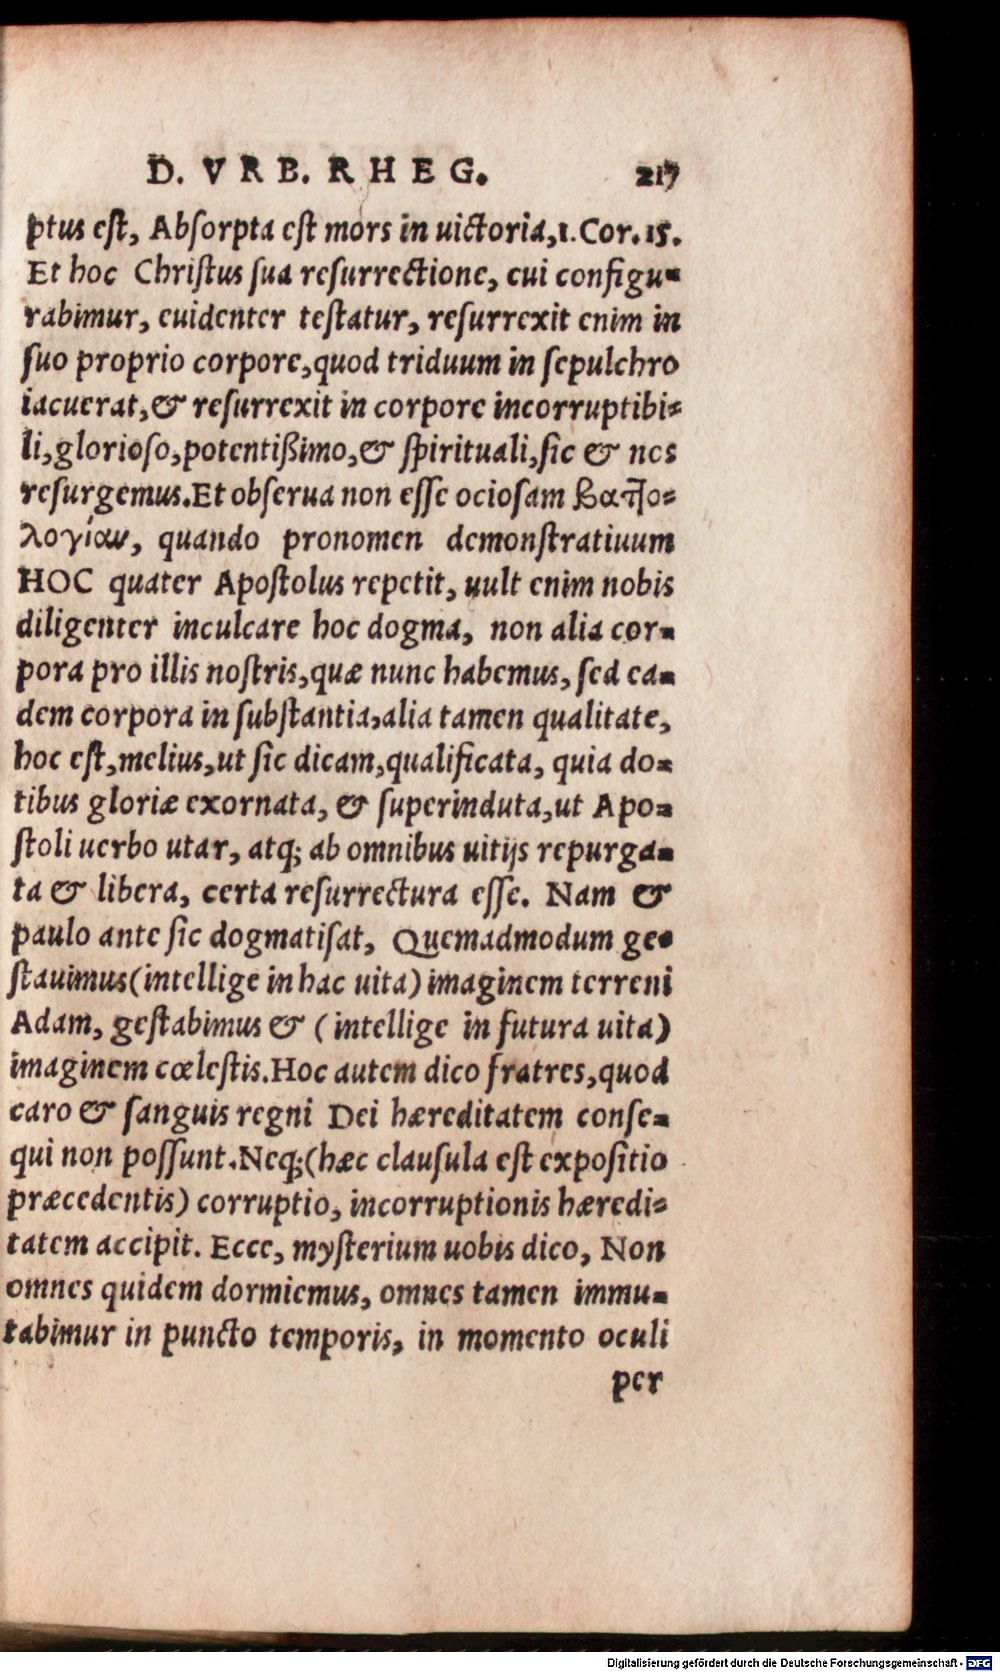 D. VRB. RHEG. 217
ptus est, Absorpta est mors in uictoria, 1. Cor. 15.
Et hoc Christus sua resurrectione, cui configu-
rabimur, euidenter testatur, resurrexit enim in
suo proprio corpore, quod triduum in sepulchro
iacuerat, & resurrexit in corpore incorruptibi-
li, glorioso, potentißimo, & spirituali, sic & nos
resurgemus. Et obserua non esse ociosam βατ]ο-
λογίαν, quando pronomen demonstratiuum
HOC quater Apostolus repetit, uult enim nobis
diligenter inculcare hoc dogma, non alia cor-
pora pro illis nostris, quæ nunc habemus, sed ea-
dem corpora in substantia, alia tamen qualitate,
hoc est, melius, ut sic dicam, qualificata, quia do-
tibus gloriæ exornata, & superinduta, ut Apo-
stoli uerbo utar, atq; ab omnibus uitijs repurga-
ta & libera, certa resurrectura esse. Nam &
paulo ante sic dogmatisat, Quemadmodum ge-
stauimus (intellige in hac uita) imaginem terreni
Adam, gestabimus & (intellige in futura uita)
imaginem cœlestis. Hoc autem dico fratres, quod
caro & sanguis regni Dei hæreditatem conse-
qui non possunt. Neq; (hæc clausula est expositio
præcedentis) corruptio, incorruptionis hæredi-
tatem accipit. Ecce, mysterium uobis dico, Non
omnes quidem dormiemus, omnes tamen immu-
tabimur in puncto temporis, in momento oculi
per
Digitalisierung gefördert durch die Deutsche Forschungsgemeinschaft - DFG